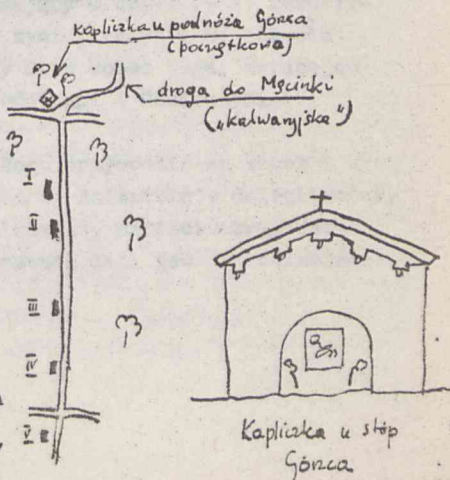 kapliczka u podnóża Górca
(początkowa)
droga do Męcinki
("kalwaryjska")
I
II
III
IV
V
Kapliczka u stóp
Górzca